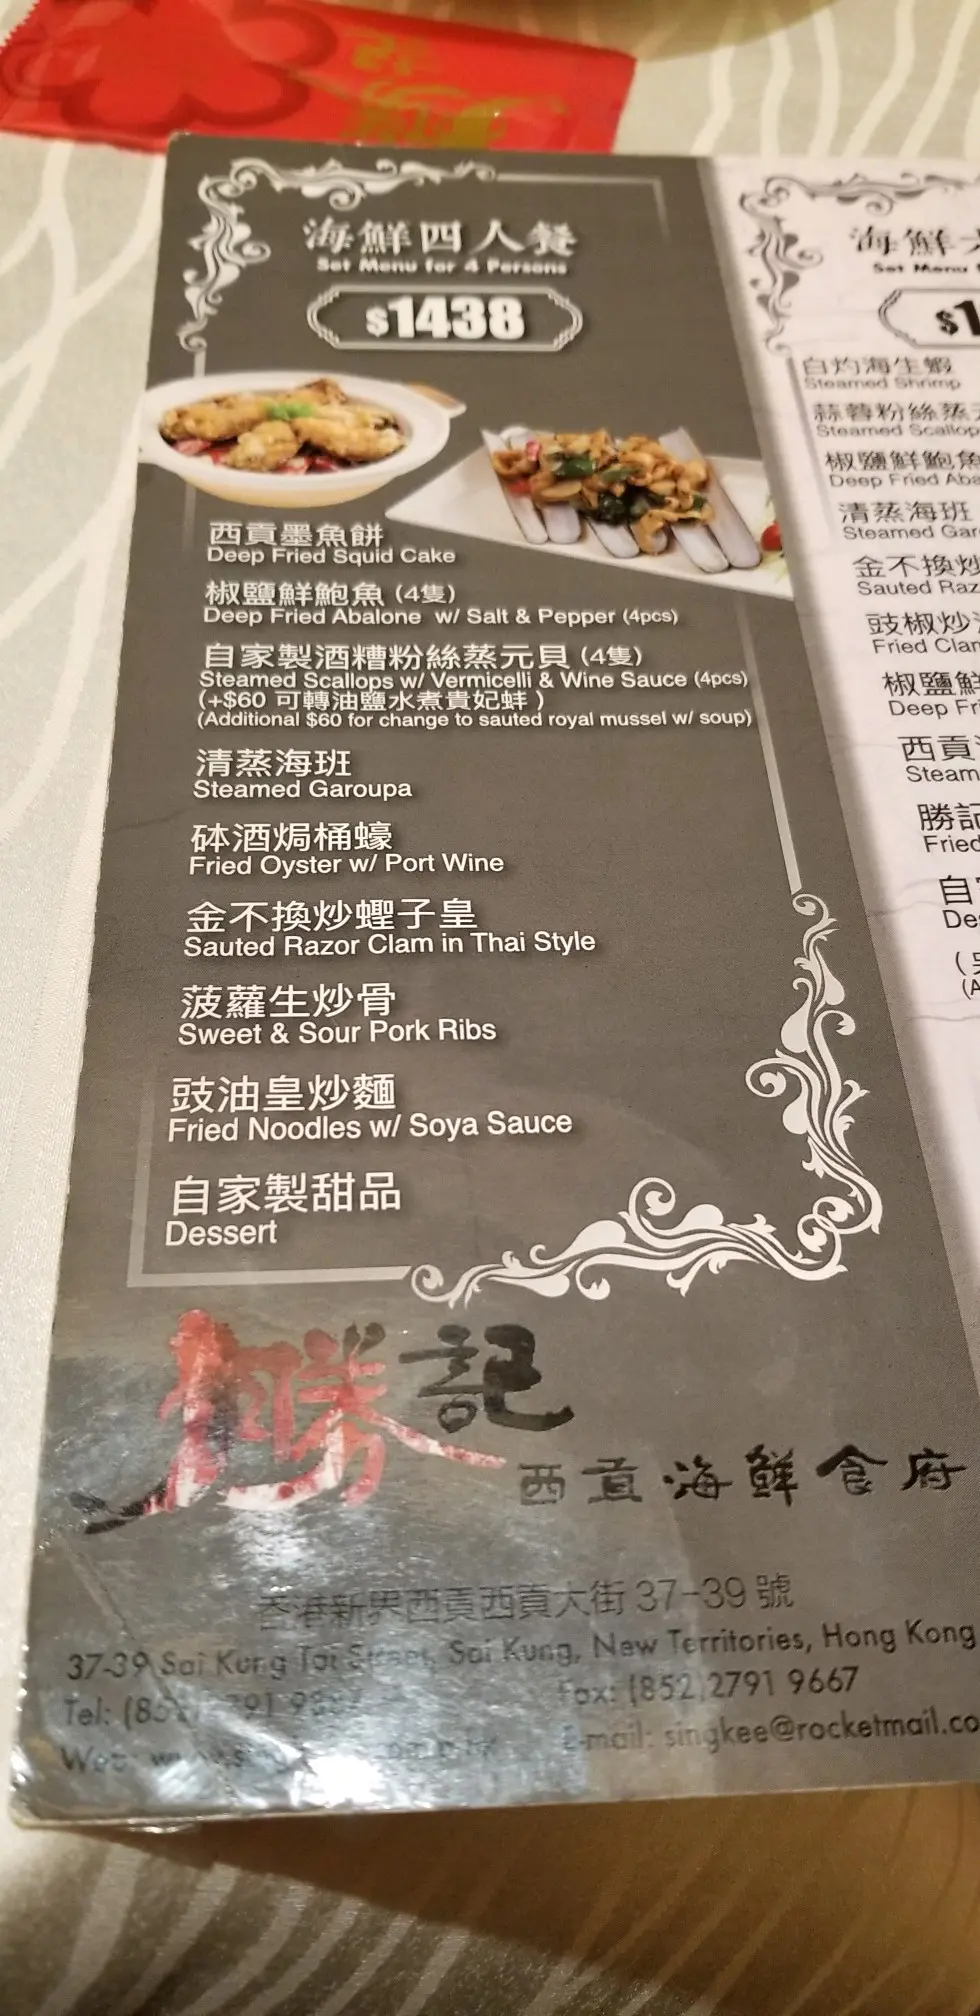 海鮮四人餐
Set Menu for 4 Persons
$1438
西貢墨魚餅
Deep Fried Squid Cake
椒鹽鮮鮑魚 (4隻)
Deep Fried Abalone w/ Salt & Pepper (4pcs)
自家製酒糟粉絲蒸元貝 (4隻)
Steamed Scallops w/ Vermicelli & Wine Sauce (4pcs)
(+$60 可轉油鹽水煮貴妃蚌)
(Additional $60 for change to sauted royal mussel w/ soup)
清蒸海班
Steamed Garoupa
砵酒焗桶蠔
Fried Oyster w/ Port Wine
金不換炒蟶子皇
Sauted Razor Clam in Thai Style
菠蘿生炒骨
Sweet & Sour Pork Ribs
豉油皇炒麵
Fried Noodles w/ Soya Sauce
自家製甜品
Dessert
勝記
西貢海鮮食府
香港新界西貢西貢大街 37-39 號
37-39 Sai Kung Tai Street, Sai Kung, New Territories, Hong Kong
Tel: (852)
Fax: (852)2791 9667
Web:
E-mail: singkee@rocketmail.co
海鮮
Set Menu
$1
白灼海生蝦
Steamed Shrimp
蒜蓉粉絲蒸
Steamed Scallop
椒鹽鮮鮑魚
Deep Fried Aba
清蒸海班
Steamed Gar
金不換炒
Sauted Raz
豉椒炒
Fried Clam
椒鹽鮮
Deep Fri
西貢
Steam
勝記
Fried
自
De
(A